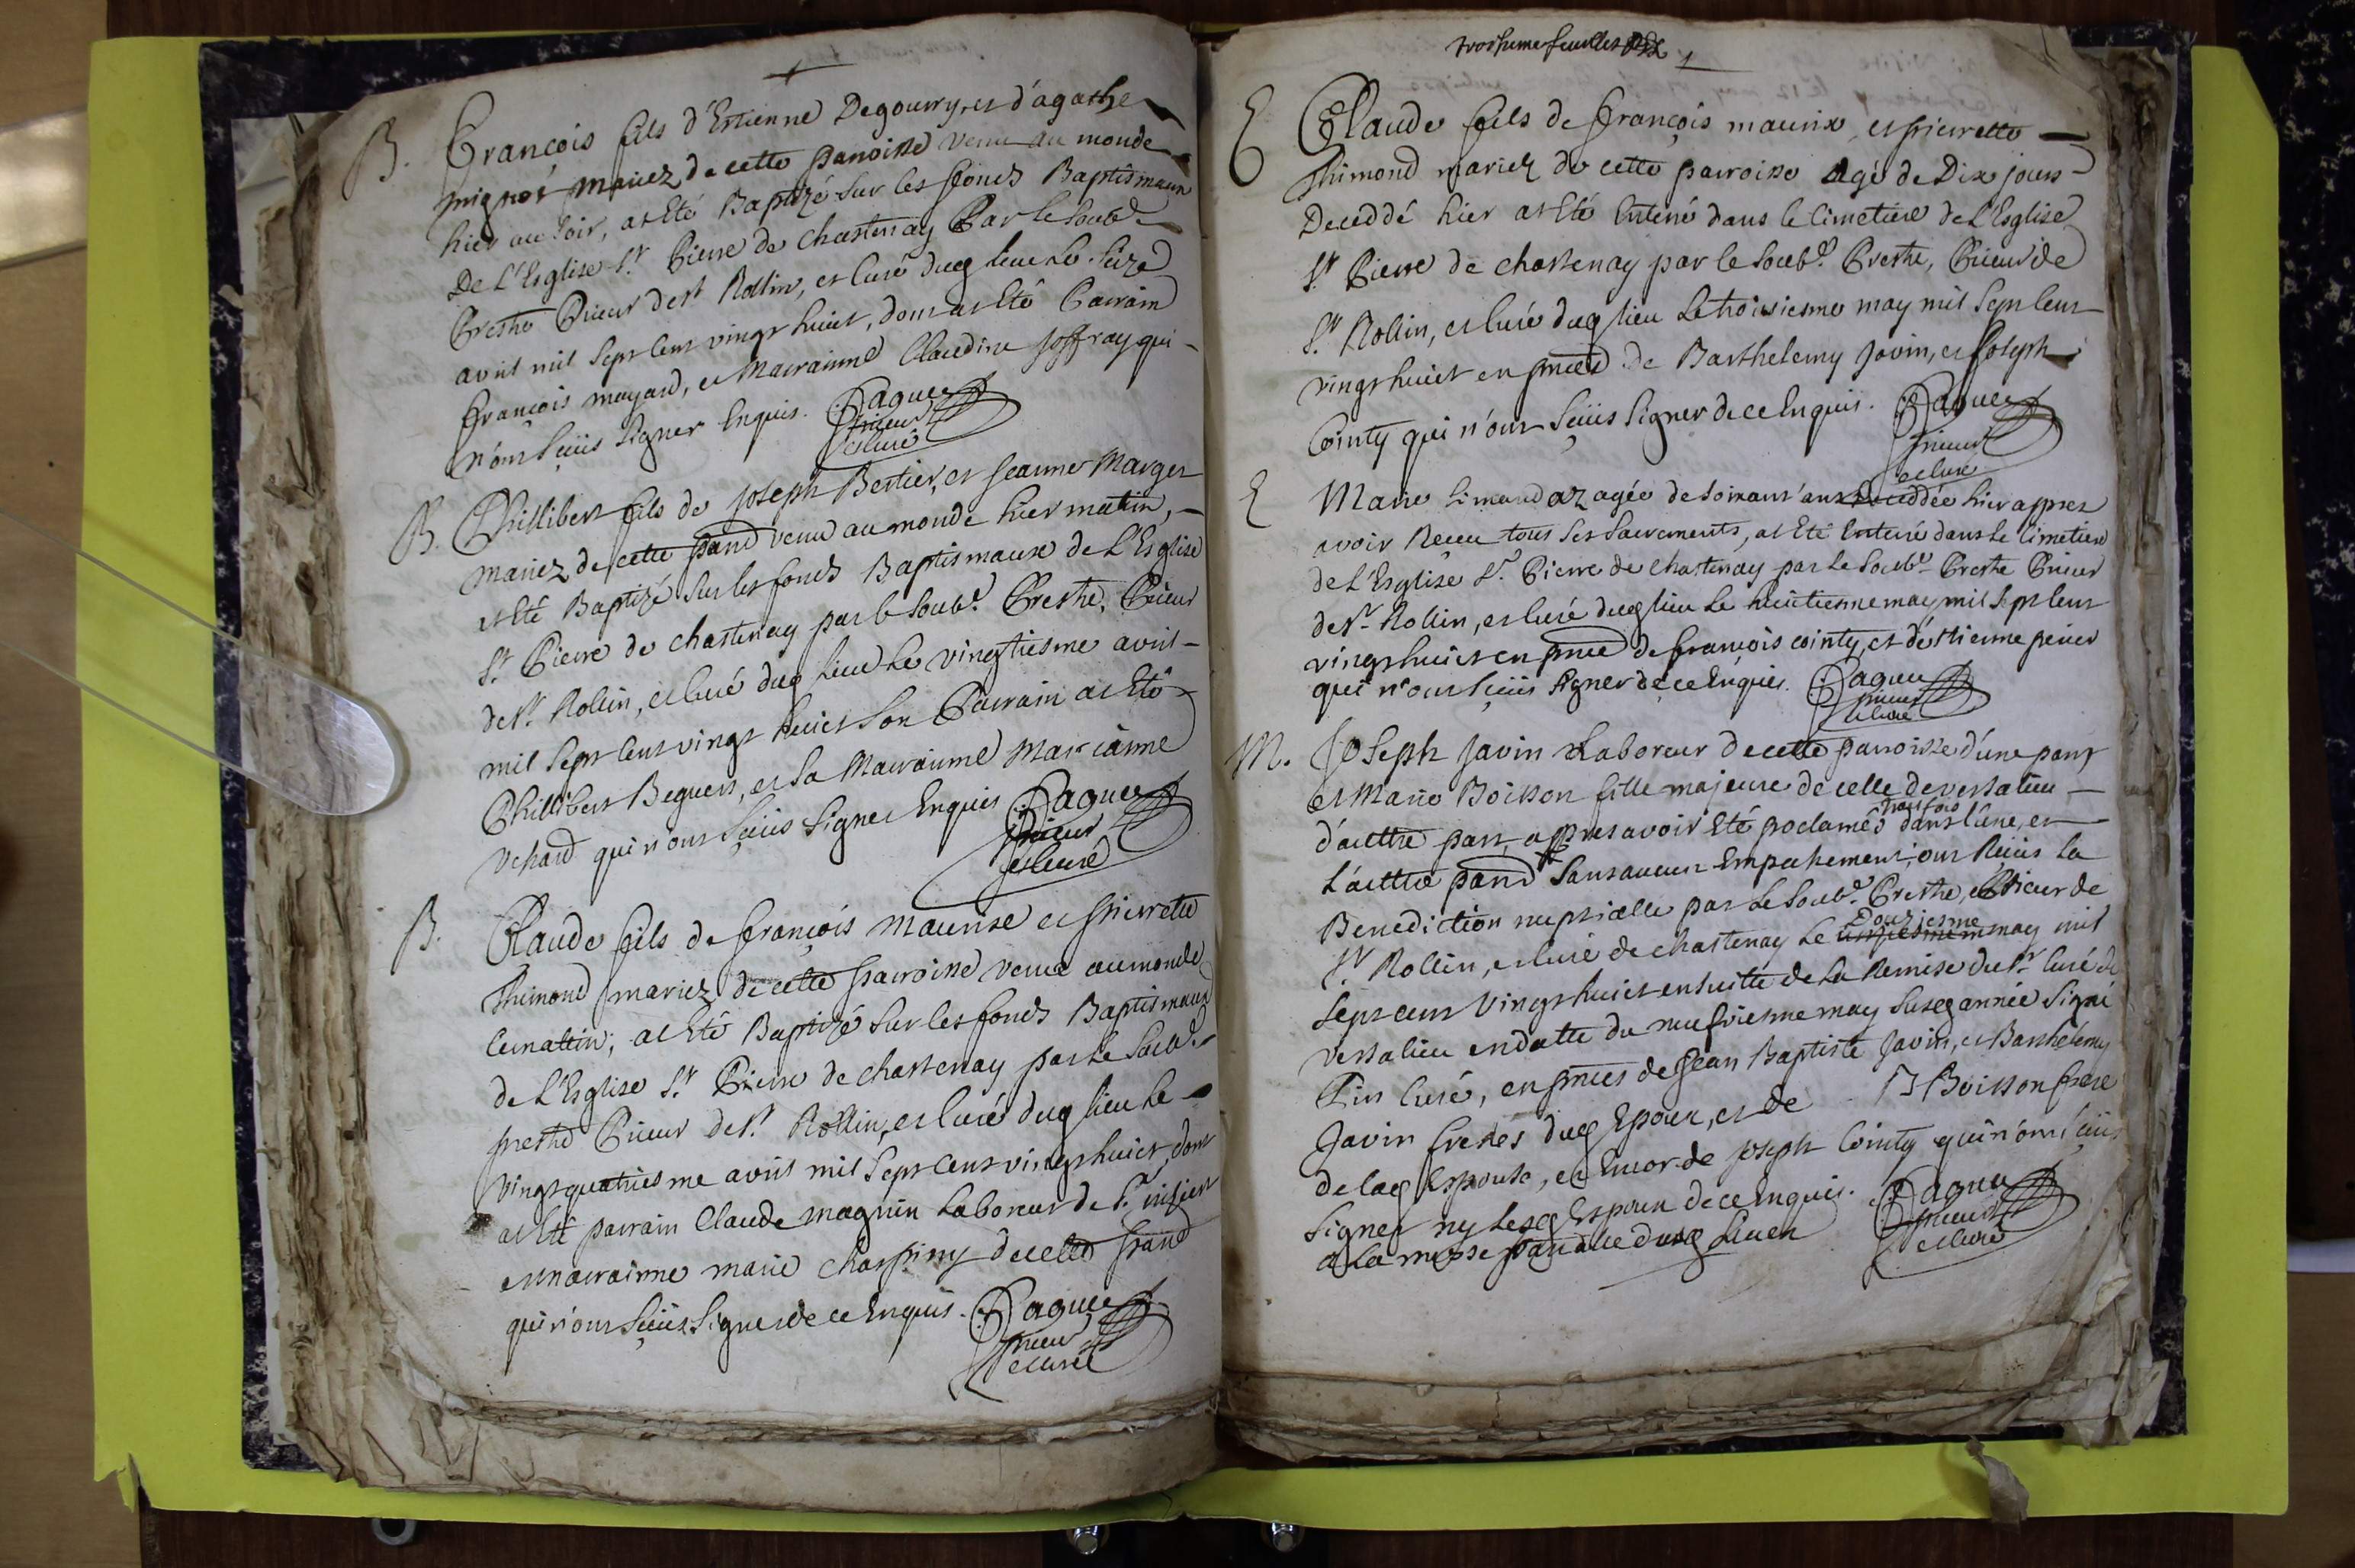 B. François fils d'Estienne Degourry, et d'agathe
mignot mariez de cette parroisse venu au monde
hier au soir, at Eté Baptizé sur les fonds Baptismaux
De L'Esglise St Pierre de chastenay Par le soub.é
Prestre Prieur de St Rollin, et Curé dudt lieu Le seize
avril mil sept Cent vingt huict, dont at Eté Parrain
françois mayard, et Marraine Claudine Joffray qui
n'ont sçüs signer Enquis. Paquer
prieur
et curé
B. Phillibert fils de Joseph Bertier, et Jeanne Marget
mariez de cette parr.e venu au monde hier matin,
at Eté Baptizé sur les fonds Baptismaux de L'Esglise
St Pierre de chastenay par le soub.é Prestre, Prieur
de St Rollin, et Curé dud lieu Le vingtiesme avril
mil sept Cent vingt huict son Parrain at Eté
Phillibert Beguers, et sa Marraine Marianne
Vchard qui n'ont sçüs signer Enquis Paquer
prieur
et Curé
B. Claude fils de françois Maurise et pierrette
Thimond mariez de cette parroisse venu au monde
ce matin, at Eté Baptizé sur les fonds Baptismaux
de L'Esglise St Pierre de chastenay par Le Soub.é
prestre Prieur de St Rollin, et Curé dud lieu Le
vingt quatriesme avril mil Sept Cent vingt huict, dont
at Eté parrain Claude magnin Laboreur de St
et marraine marie charpiny de cette parr.e
qui n'ont sçüs signer de ce Enquis. Paquer
prieur
et curé
troisieme feuillet
E Claude fils de françois maurix, et pierrette
Thimond mariez de cette parroisse Agé de Dix jours
Deceddé hier at Eté Enterré dans le Cimetiere de L'Esglise
St Pierre de chastenay par le soub.é Prestre, Prieur de
St Rollin, et Curé dud lieu Le troisiesme may mil Sept Cent
vingt huict en pnces de Barthelemy Javin, et Joseph
Cointy qui n'ont sçüs signer de ce Enquis. Paquer
prieur
et curé
E Marie Limandaz agée de soixant'ans deceddée hier appres
avoir Receu tous ses sacrements, at Eté Enterré dans le Cimetiere
de L'Esglise St Pierre de chastenay par Le Soub.é Prestre Prieur
de St Rollin, et Curé dud lieu Le huictiesme may mil sept Cent
vingt huict en pnce de françois cointy, et d'éstienne perier
qui n'ont sçüs signer de ce Enquis. Paquer
prieur
et curé
M. Joseph Javin Laboreur de cette parroisse d'une part
et Marie Boisson fille majeure de celle de versalieu
d'aultre part, appres avoir Eté poclamés trois fois dans L'une, et
L'aultre parr.e sans aucun Empechement, ont Reçüs La
Benediction nuptialle par Le soub.é Prestre, Prieur de
St Rollin, et Curé de chastenay Le Douziesme may mil
Sept cent Vingt huict ensuitte de La Remise du Sr Curé de
Versalieu en datte du neufviesme may susd année signé
Pin Curé, en pnces de Jean Baptiste Javin, et Barthelemy
Javin freres dud Epoux, et de Boisson frere
de lad Espouse, et Encor de Joseph Cointy qui n'ont sçüs
signer ny Lesd Espoux de ce enquis. Paquer
prieur
et curé